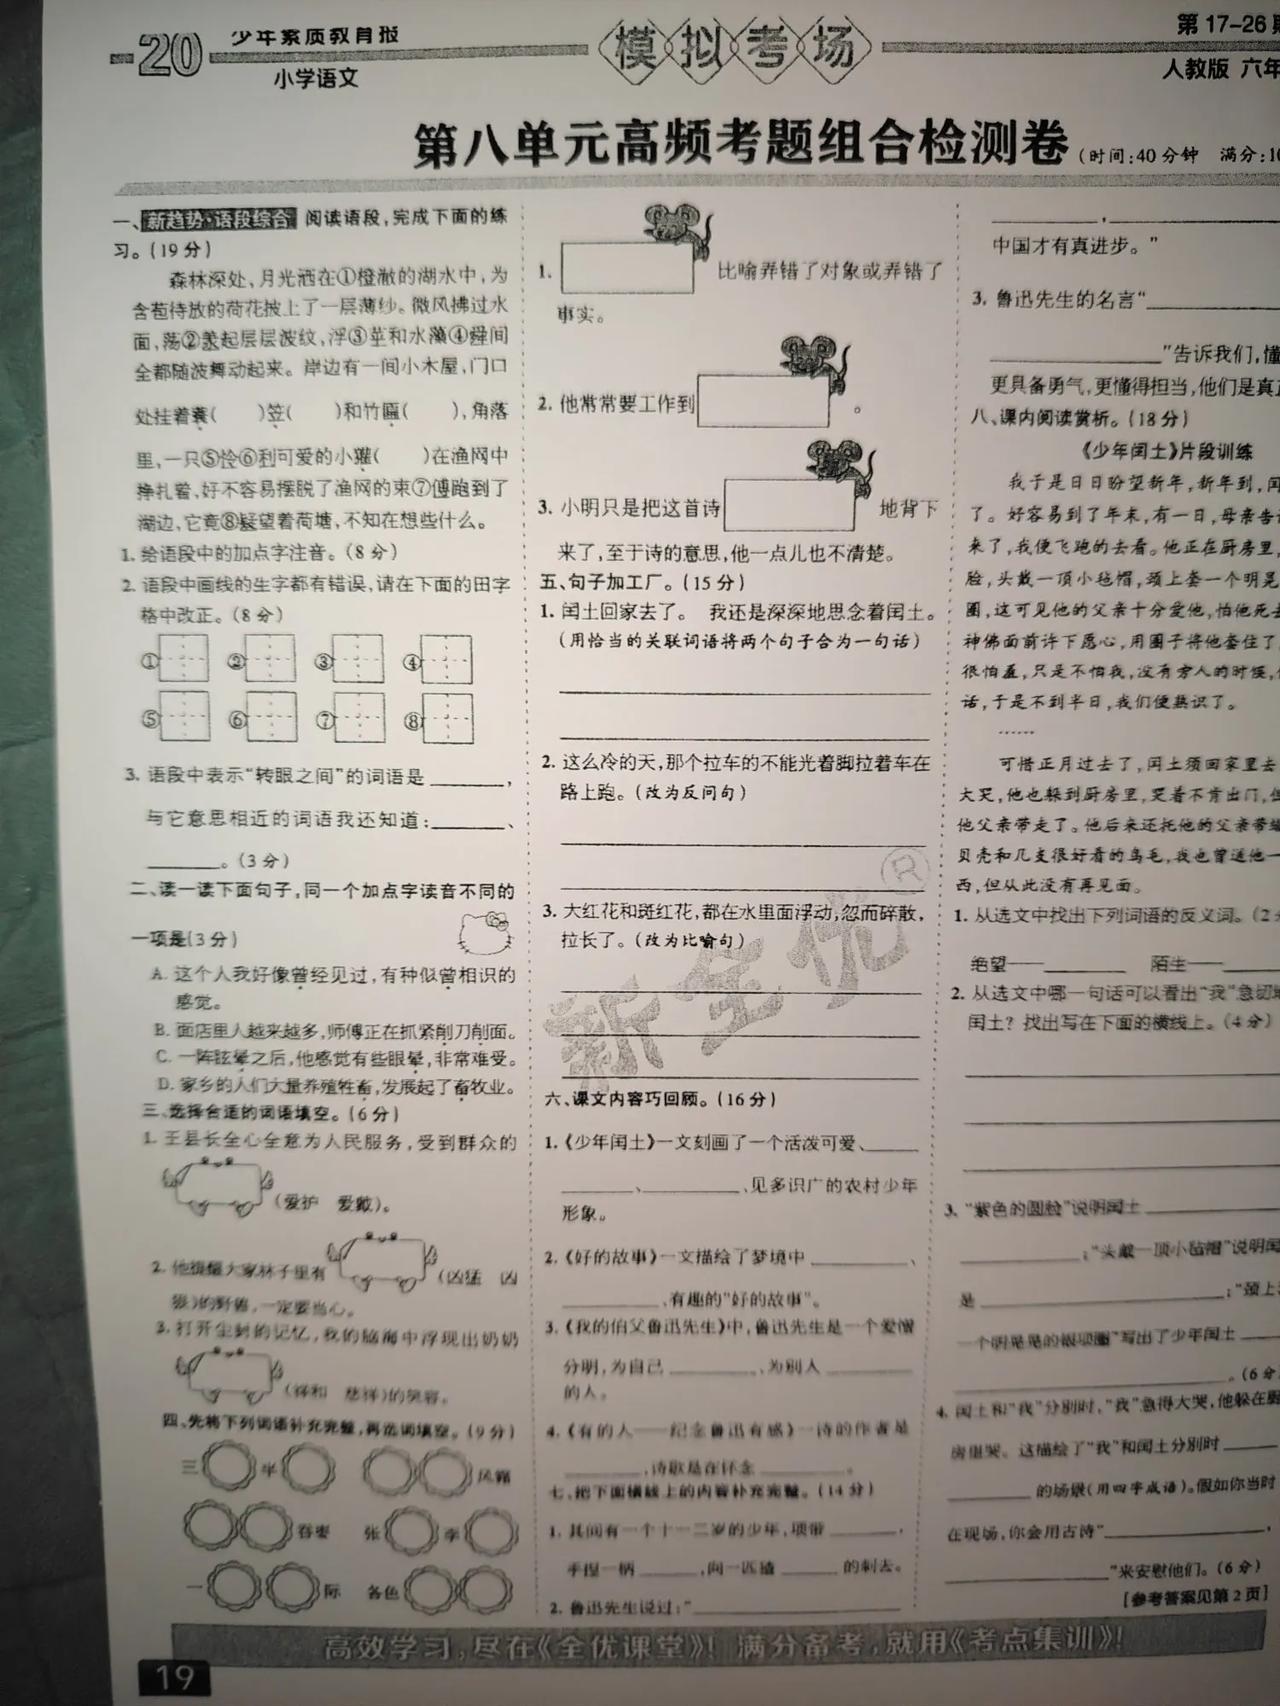 20
少年素质教育报
小学语文
模拟考场
第17-26期
人教版 六年
第八单元高频考题组合检测卷(时间:40分钟 满分:10
一、新趋势·语段综合 阅读语段,完成下面的练
习。(19分)
森林深处,月光洒在①橙澈的湖水中,为
含苞待放的荷花披上了一层薄纱。微风拂过水
面,荡②羕起层层波纹,浮③苹和水藻④舜间
全都随波舞动起来。岸边有一间小木屋,门口
处挂着蓑( )笠( )和竹匾( ),角落
里,一只⑤恰⑥利可爱的小獾( )在渔网中
挣扎着,好不容易摆脱了渔网的束⑦傅跑到了
湖边,它竟⑧疑望着荷塘,不知在想些什么。
1. 给语段中的加点字注音。(8分)
2. 语段中画线的生字都有错误,请在下面的田字
格中改正。(8分)
① ② ③ ④
⑤ ⑥ ⑦ ⑧
3. 语段中表示“转眼之间”的词语是________,
与它意思相近的词语我还知道:________、
________。(3分)
二、读一读下面句子,同一个加点字读音不同的
一项是(3分)
A. 这个人我好像曾经见过,有种似曾相识的
感觉。
B. 面店里人越来越多,师傅正在抓紧削刀削面。
C. 一阵眩晕之后,他感觉有些眼晕,非常难受。
D. 家乡的人们大量养殖牲畜,发展起了畜牧业。
三、选择合适的词语填空。(6分)
1. 王县长全心全意为人民服务,受到群众的
(爱护 爱戴)。
2. 他提醒大家林子里有 (凶猛 凶
狠)的野兽,一定要当心。
3. 打开尘封的记忆,我的脑海中浮现出奶奶
(祥和 慈祥)的笑容。
四、先将下列词语补充完整,再选词填空。(9分)
三 半 风霜
吞枣 张 李
一 际 各色
1. 比喻弄错了对象或弄错了
事实。
2. 他常常要工作到 。
3. 小明只是把这首诗 地背下
来了,至于诗的意思,他一点儿也不清楚。
五、句子加工厂。(15分)
1. 闰土回家去了。 我还是深深地思念着闰土。
(用恰当的关联词语将两个句子合为一句话)
2. 这么冷的天,那个拉车的不能光着脚拉着车在
路上跑。(改为反问句)
3. 大红花和斑红花,都在水里面浮动,忽而碎散,
拉长了。(改为比喻句)
六、课文内容巧回顾。(16分)
1.《少年闰土》一文刻画了一个活泼可爱、______
________、________、见多识广的农村少年
形象。
2.《好的故事》一文描绘了梦境中________、
________、有趣的“好的故事”。
3.《我的伯父鲁迅先生》中,鲁迅先生是一个爱憎
分明,为自己________、为别人________
的人。
4.《有的人——纪念鲁迅有感》一诗的作者是
________,诗歌是在怀念________。
七、把下面横线上的内容补充完整。(14分)
1. 其间有一个十一二岁的少年,项带________,
手捏一柄________,向一匹猹________的刺去。
2. 鲁迅先生说过:“________
________,________
中国才有真进步。”
3. 鲁迅先生的名言“________
________”告诉我们,懂
更具备勇气,更懂得担当,他们是真正
八、课内阅读赏析。(18分)
《少年闰土》片段训练
我于是日日盼望新年,新年到,闰
了。好容易到了年末,有一日,母亲告诉
来了,我便飞跑的去看。他正在厨房里,
脸,头戴一顶小毡帽,颈上套一个明晃
圈,这可见他的父亲十分爱他,怕他死去
神佛面前许下愿心,用圈子将他套住了
很怕羞,只是不怕我,没有旁人的时候,
话,于是不到半日,我们便熟识了。
……
可惜正月过去了,闰土须回家里去
大哭,他也躲到厨房里,哭着不肯出门,但
他父亲带走了。他后来还托他的父亲带给
贝壳和几支很好看的鸟毛,我也曾送他一
西,但从此没有再见面。
1. 从选文中找出下列词语的反义词。(2分
绝望——________ 陌生——________
2. 从选文中哪一句话可以看出“我”急切地
闰土?找出写在下面的横线上。(4分)
3. “紫色的圆脸”说明闰土________
________;“头戴一顶小毡帽”说明闰
是________;“颈上
一个明晃晃的银项圈”写出了少年闰土________
________。(6分
4. 闰土和“我”分别时,“我”急得大哭,他躲在厨
房里哭。这描绘了“我”和闰土分别时________
________的场景(用四字成语)。假如你当时
在现场,你会用古诗“________,
________”来安慰他们。(6分)
[参考答案见第2页]
新全优
®
高效学习,尽在《全优课堂》! 满分备考,就用《考点集训》!
19